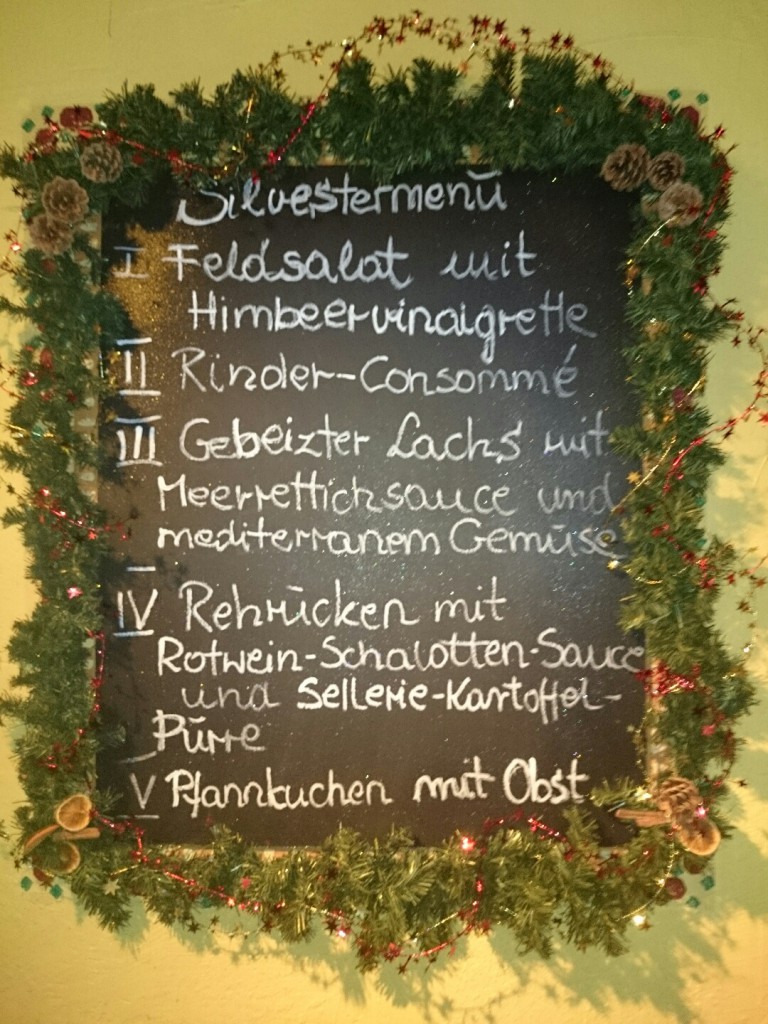 Silvestermenü
I Feldsalat mit
Himbeervinaigrette
II Rinder-Consommé
III Gebeizter Lachs mit
Meerrettichsauce und
mediterranem Gemüse
IV Rehrücken mit
Rotwein-Schalotten-Sauce
und Sellerie-Kartoffel-
Pürre
V Pfannkuchen mit Obst